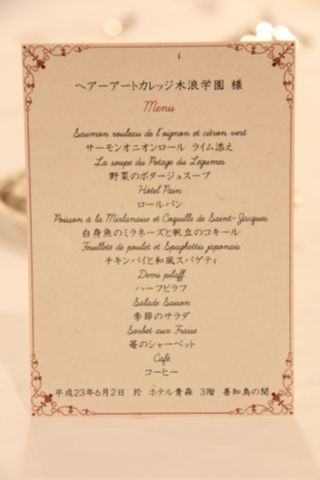 ヘアーアートカレッジ木浪学園 様
Menu
Saumon rouleau de l'oignon et citron vert
サーモンオニオンロール ライム添え
La soupe du Potage du Legumes
野菜のポタージュスープ
Hôtel Pain
ロールパン
Poisson a la Mirlanaise et Coquille de Saint-Jacques
白身魚のミラネーズと帆立のコキール
Feuillete de poulet et Spaghettis japonais
チキンパイと和風スパゲティ
Demi pilaff
ハーフピラフ
Salade Saison
季節のサラダ
Sorbet aux Fraise
苺のシャーベット
Café
コーヒー
平成23年6月2日 於 ホテル青森 3階 善知鳥の間